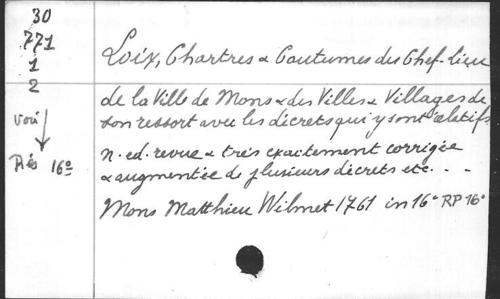 30
771
1
2
voir
Rés 16°
Loix, Chartres & Coutumes du Chef-lieu
de la Ville de Mons & des Villes & Villages de
son ressort avec les décrets qui y sont relatifs
n. ed. revue & très exactement corrigée
& augmentée de plusieurs décrets etc. . .
Mons Matthieu Wilmet 1761 in 16° RP 16°